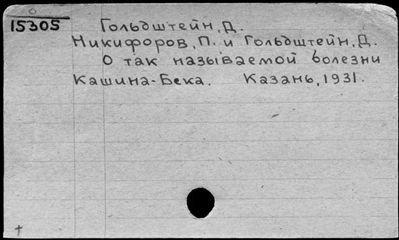 15305 Гольдштейн, Д.
Никифоров, П. и Гольдштейн, Д.
О так называемой болезни
Кашина-Бека. Казань, 1931.